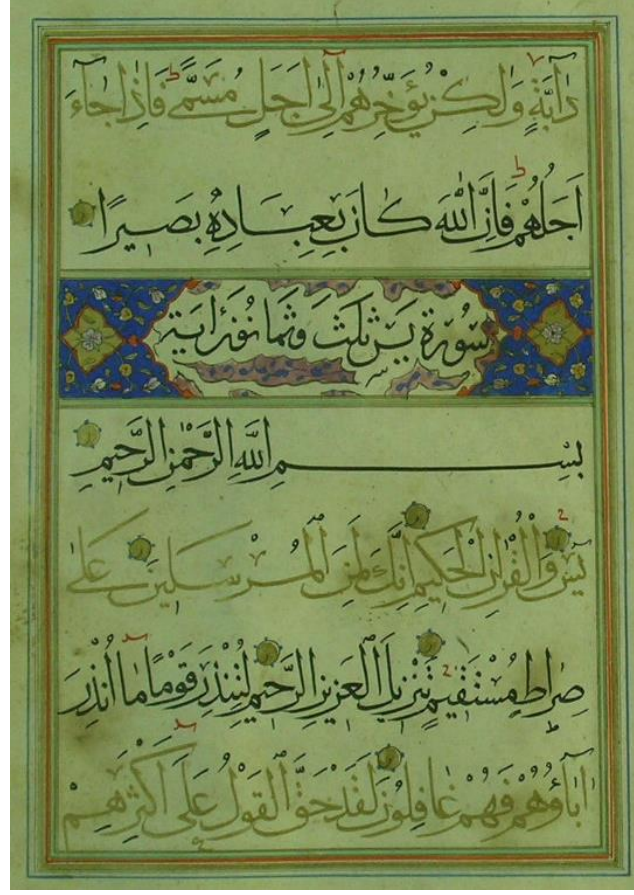 دَآبَّةٍ وَلٰكِنْ يُؤَخِّرُهُمْ اِلٰٓى اَجَلٍ مُسَمًّى فَاِذَا جَآءَ
اَجَلُهُمْ فَاِنَّ اللّٰهَ كَانَ بِعِبَادِهٖ بَصٖيرًا
سُورَةُ يٰسٓ ثَلٰثَ وَثَمَانُونَ اٰيَة
بِسْمِ اللّٰهِ الرَّحْمٰنِ الرَّحٖيمِ
يٰسٓ وَالْقُرْاٰنِ الْحَكٖيمِ اِنَّكَ لَمِنَ الْمُرْسَلٖينَ عَلٰى
صِرَاطٍ مُسْتَقٖيمٍ تَنْزٖيلَ الْعَزٖيزِ الرَّحٖيمِ لِتُنْذِرَ قَوْمًا مَٓا اُنْذِرَ
اٰبَٓاؤُهُمْ فَهُمْ غَافِلُونَ لَقَدْ حَقَّ الْقَوْلُ عَلٰٓى اَكْثَرِهِمْ